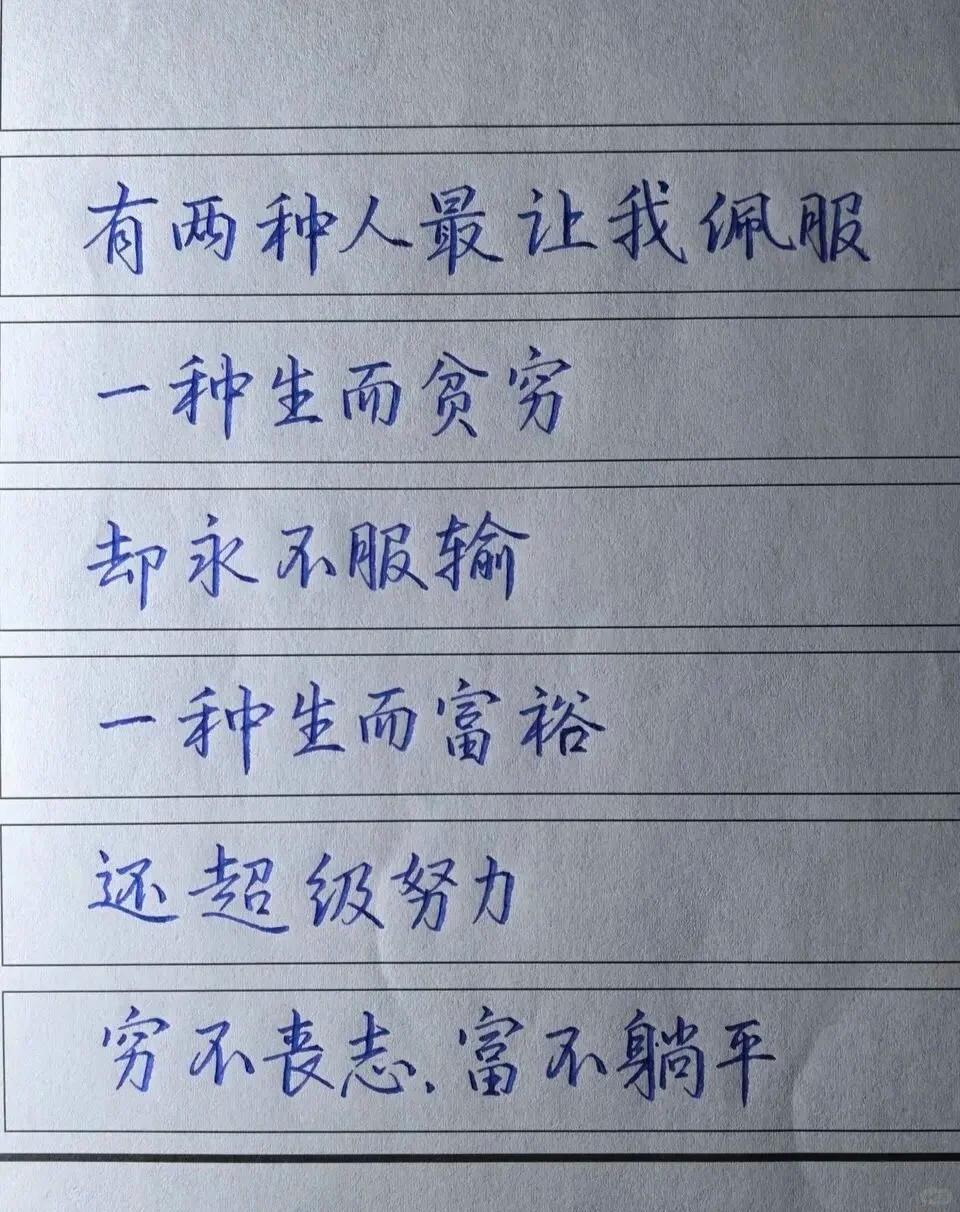 有两种人最让我佩服
一种生而贫穷
却永不服输
一种生而富裕
还超级努力
穷不丧志、富不躺平